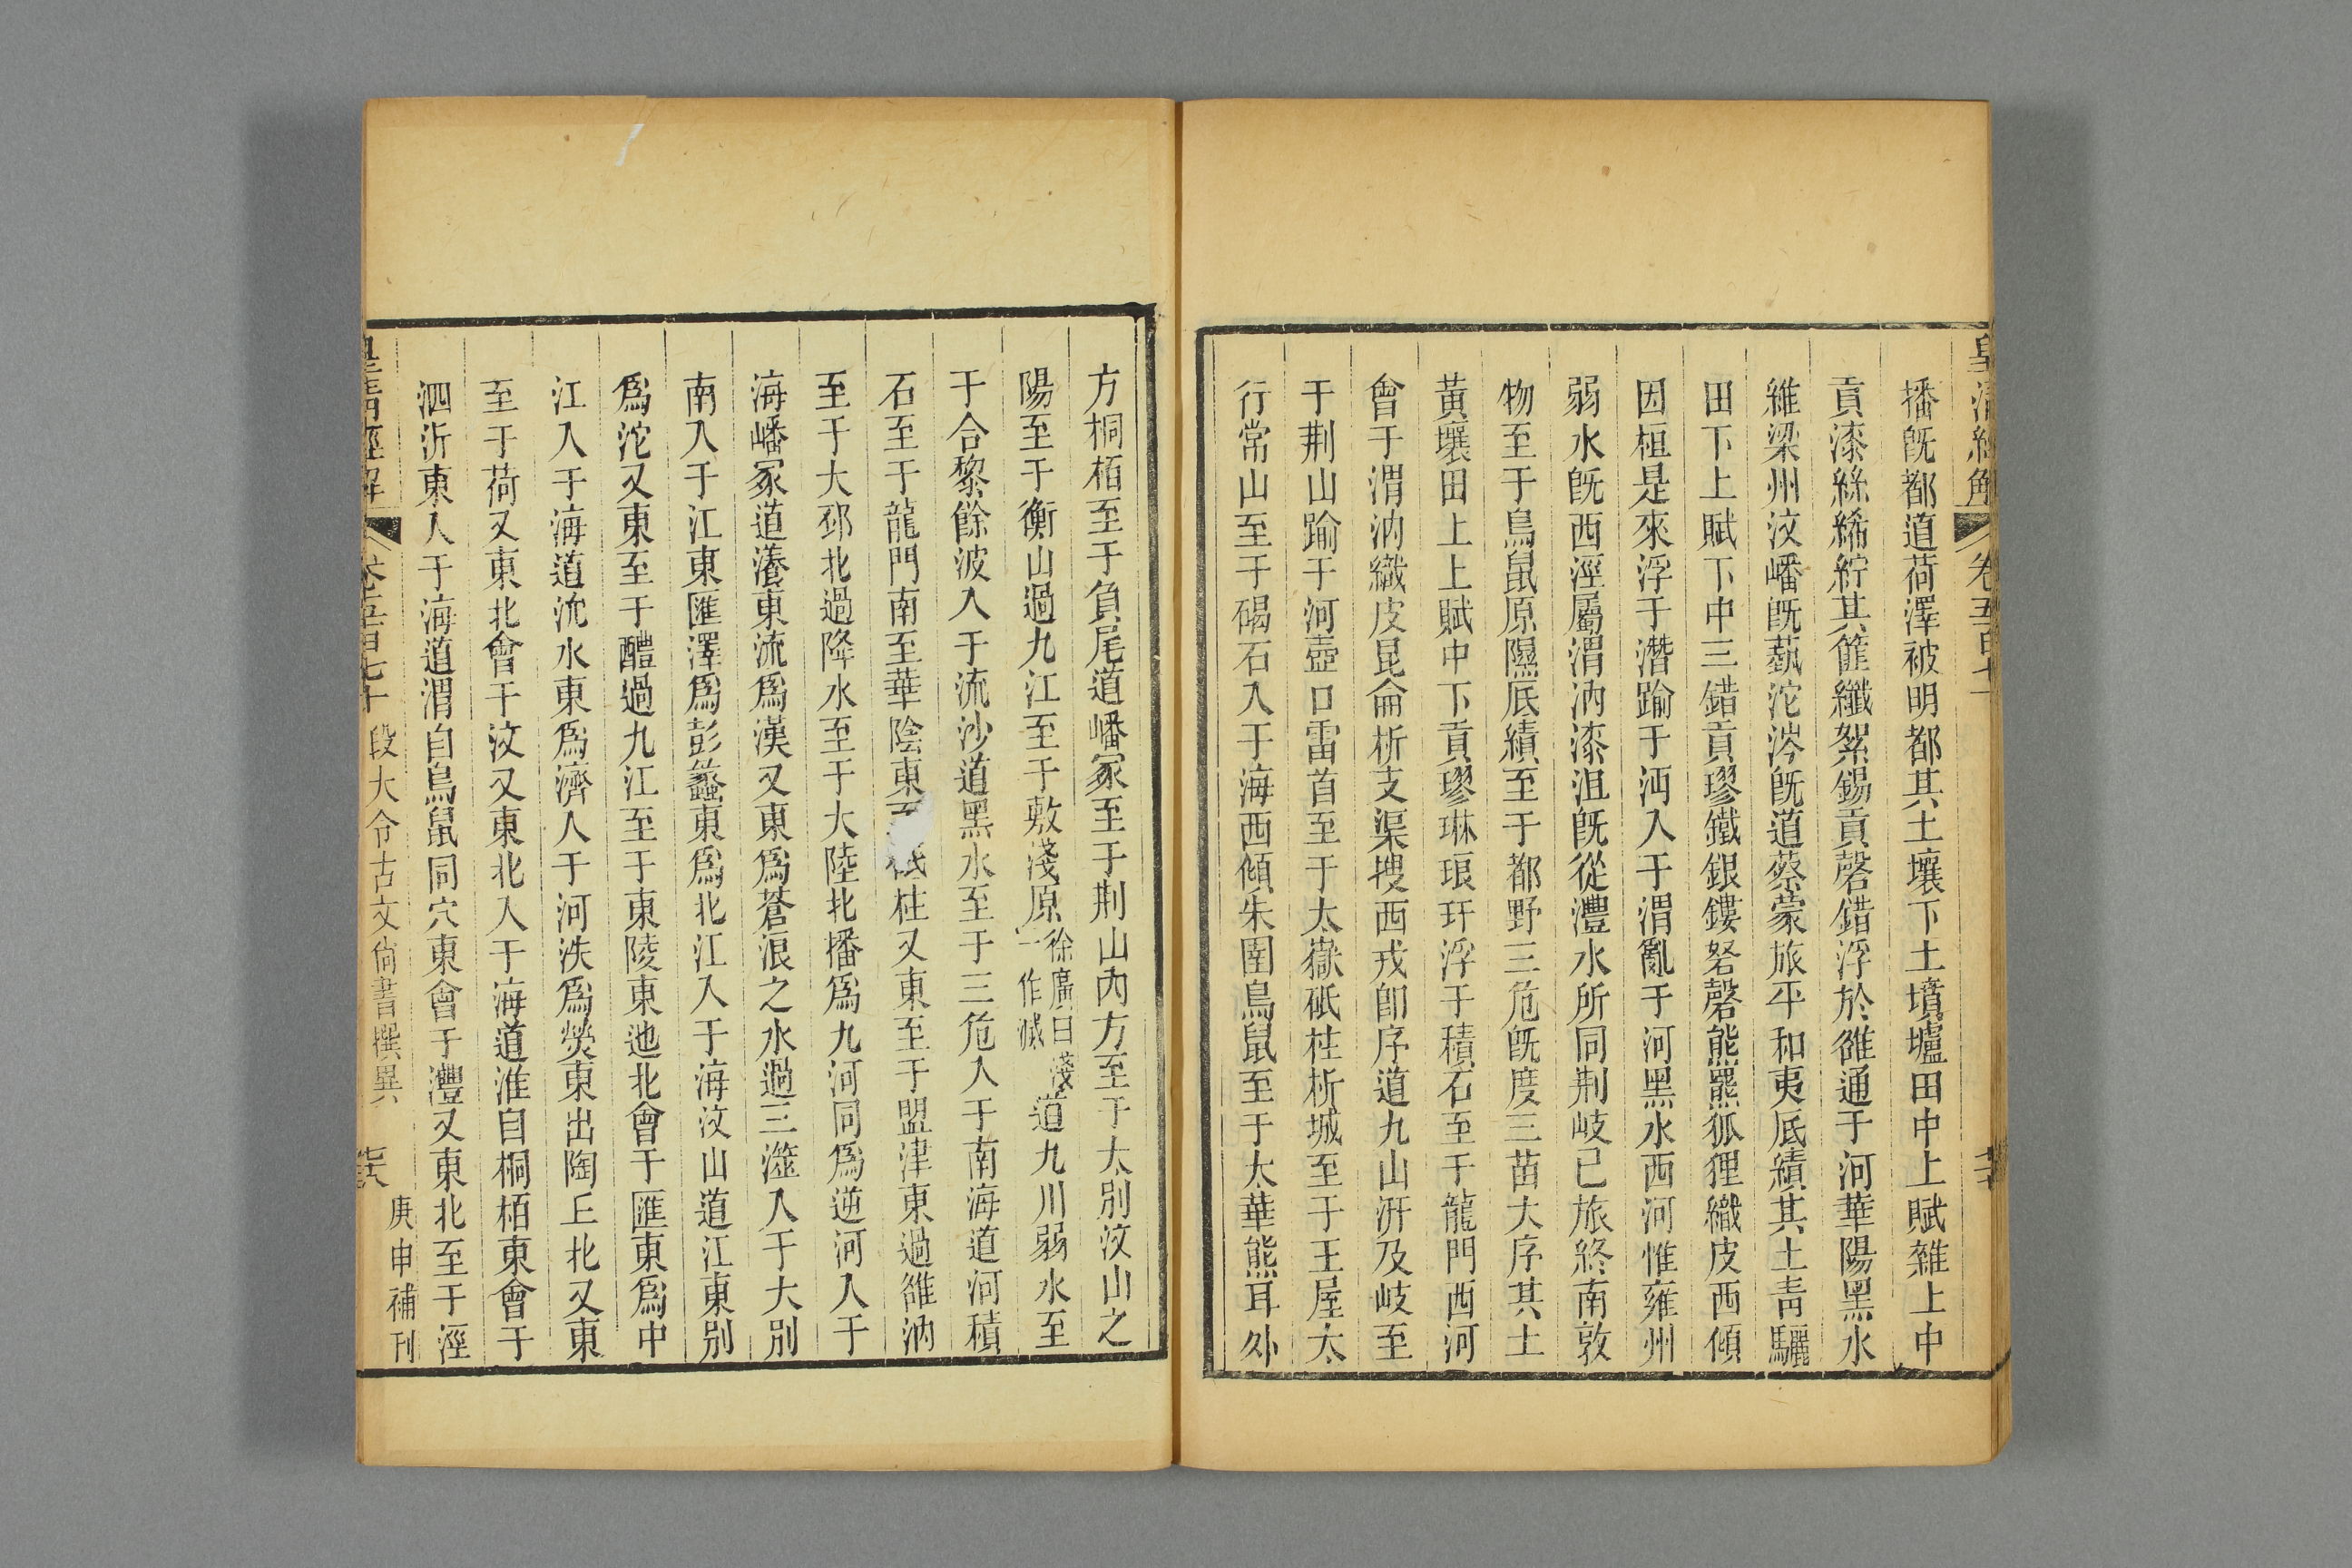 皇清經解 卷五百七十
播旣都道荷澤被明都其土壤下土墳壚田中上賦雜上中
貢漆絲絺紵其篚纖絮錫貢磬錯浮於雒通于河華陽黑水
維梁州汶嶓旣蓺沱涔旣道蔡蒙旅平和夷厎績其土靑驪
田下上賦下中三錯貢璆鐵銀鏤砮磬熊羆狐狸織皮西傾
因桓是來浮于潛踰于沔入于渭亂于河黑水西河惟雍州
弱水旣西涇屬渭汭漆沮旣從灃水所同荆岐已旅終南敦
物至于鳥鼠原隰厎績至于都野三危旣度三苗大序其土
黃壤田上上賦中下貢璆琳琅玕浮于積石至于龍門西河
會于渭汭織皮昆侖析支渠搜西戎卽序道九山汧及岐至
于荆山踰于河壺口雷首至于太嶽砥柱析城至于王屋太
行常山至于碣石入于海西傾朱圉鳥鼠至于太華熊耳外
方桐栢至于負尾道嶓冢至于荆山內方至于大別汶山之
陽至于衡山過九江至于敷淺原徐廣曰淺一作滅道九川弱水至
于合黎餘波入于流沙道黑水至于三危入于南海道河積
石至于龍門南至華陰東至砥柱又東至于盟津東過雒汭
至于大邳北過降水至于大陸北播爲九河同爲逆河入于
海嶓冢道瀁東流爲漢又東爲蒼浪之水過三澨入于大別
南入于江東匯澤爲彭蠡東爲北江入于海汶山道江東別
爲沱又東至于醴過九江至于東陵東迆北會于匯東爲中
江入于海道沇水東爲濟入于河泆爲熒東出陶丘北又東
至于荷又東北會于汶又東北入于海道淮自桐栢東會于
泗沂東入于海道渭自鳥鼠同穴東會于灃又東北至于涇
皇淸經解 卷五百七十 段大令古文尙書撰異 庚申補刊